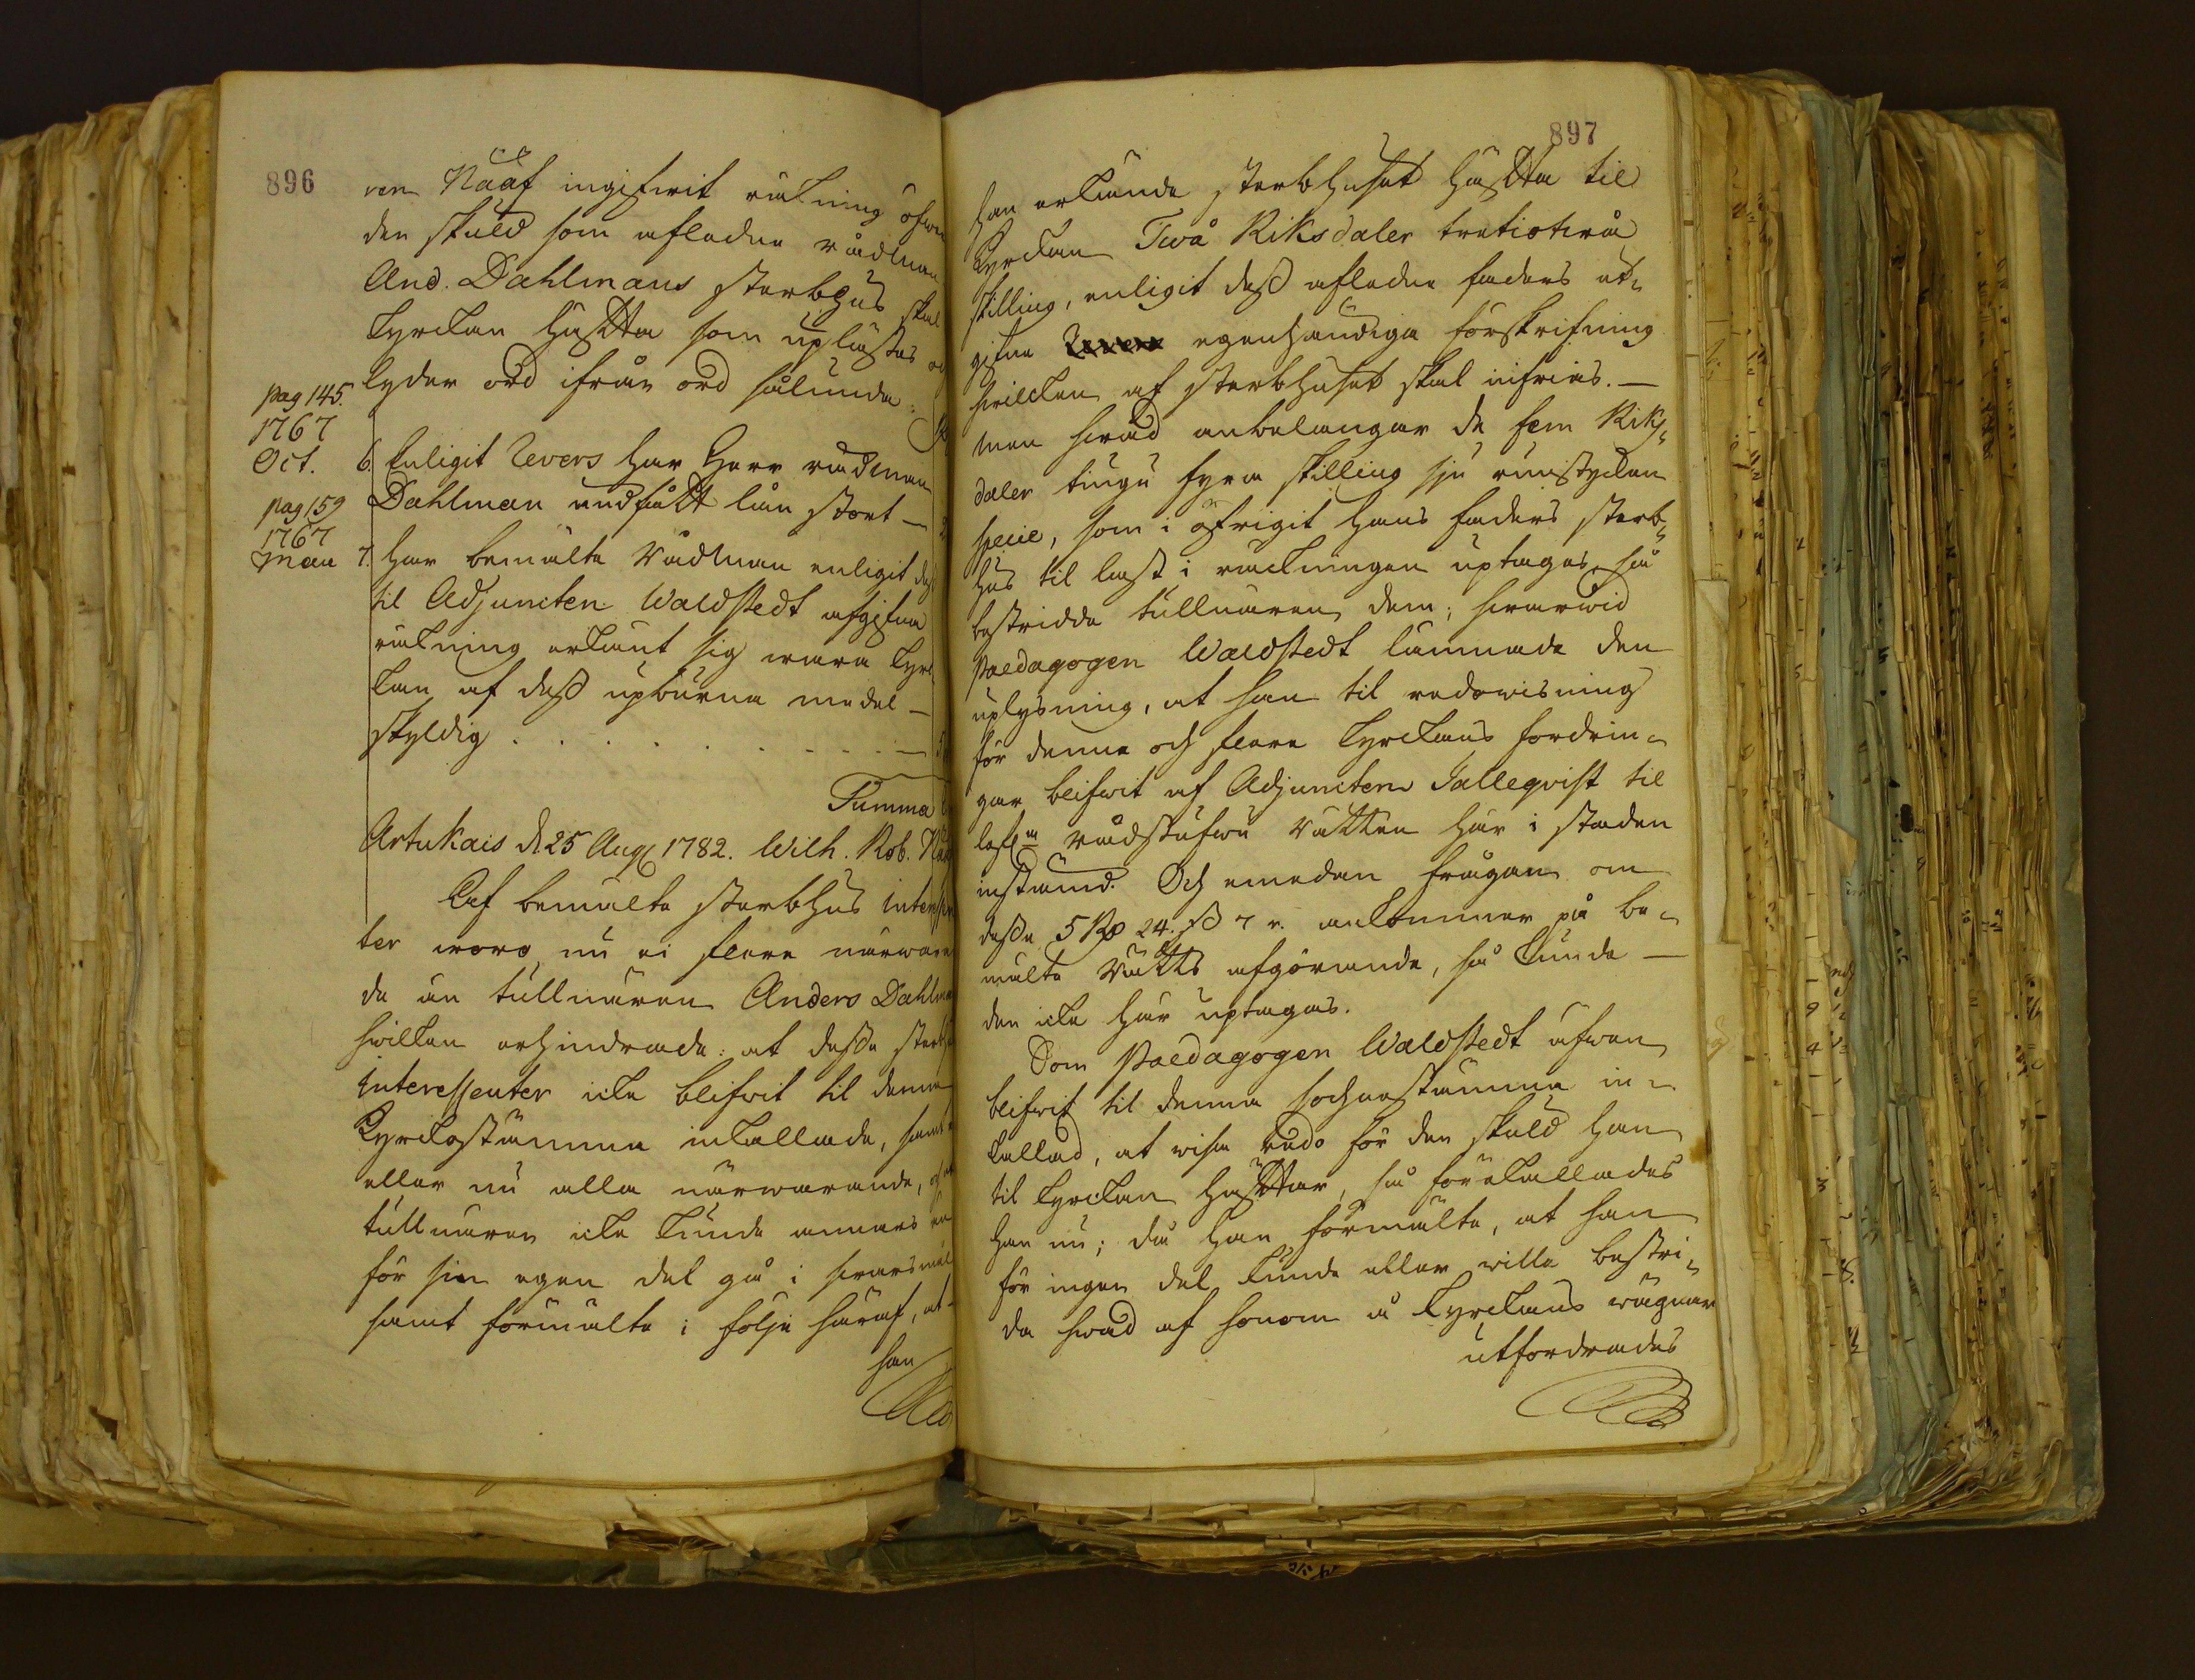 896
ren Nääf ingifwit räkning öfwer
den skuld som afledne rådman
And. Dahlmans sterbhus skal
kyrckan häfta som uplästes och
lyder ord ifrån ord sålunda:
pag 145.
1767
Oct.
6. Enligit Revers har Herr rådman
Dahlman undfått lån stort —
pag 159
1767
Mau
7. har bemälte Rådman enligit dess
til Adjuncten Waldstedt afgifna
räkning erkänt sig wara kyrc
kan af dess upburna medel —
skyldig . . . . . . . .
Summa
Artukais d. 25 Aug 1782. Wilh. Rob. Nääf
Af bemälte sterbhus interessen
ter woro nu ei flere närwaran
de än tullnären Anders Dahlman
hvilken erhindrade: at desse sterbhus
interessenter icke blifwit til denna
Kyrckostämma inkallade, samt
eller nu alla närwarande, och at
tullnären icke kunde annars än
för sin egen del gå i swaromål
samt förmälte i följe häraf, at
han
897
han erkände sterbhuset häfta til
Kyrckan Twå Riksdaler tretiotwå
skilling, enligit dess afledne faders ut-
gifna egenhändiga förskrifning
hvilcken af sterbhuset skal infrias. —
men hwad anbelangar de fem Riks-
daler tiugu fyra skilling sju runstycken
specie, som i öfrigit hans faders sterb-
hus til last i räckningen uptages, så
bestridde tullnären dem; hwarwid
Paedagogen Waldstedt lämnade den
uplysning, at han til redowisning
för denne och flere Kyrckans fordrin-
gar blifwit af Adjuncten Salleqvist til
lofl. Rådstufwu Rätten här i staden
instämd. Och emedan frågan om
desse 5 Rd 24. ß 7 r. ankommer på be-
mälte Rätts afgörande, så kunde —
den icke här uptagas.
Som Paedagogen Waldstedt äfwen
blifwit til denna sochnestämma in-
kallad, at wisa redo för den skuld han
til kyrckan häftar, så förekallades
han nu; då han förmälte, at han
för ingen del kunde eller wille bestri-
da hwad af honom å Kyrckans wägnar
utfordrades